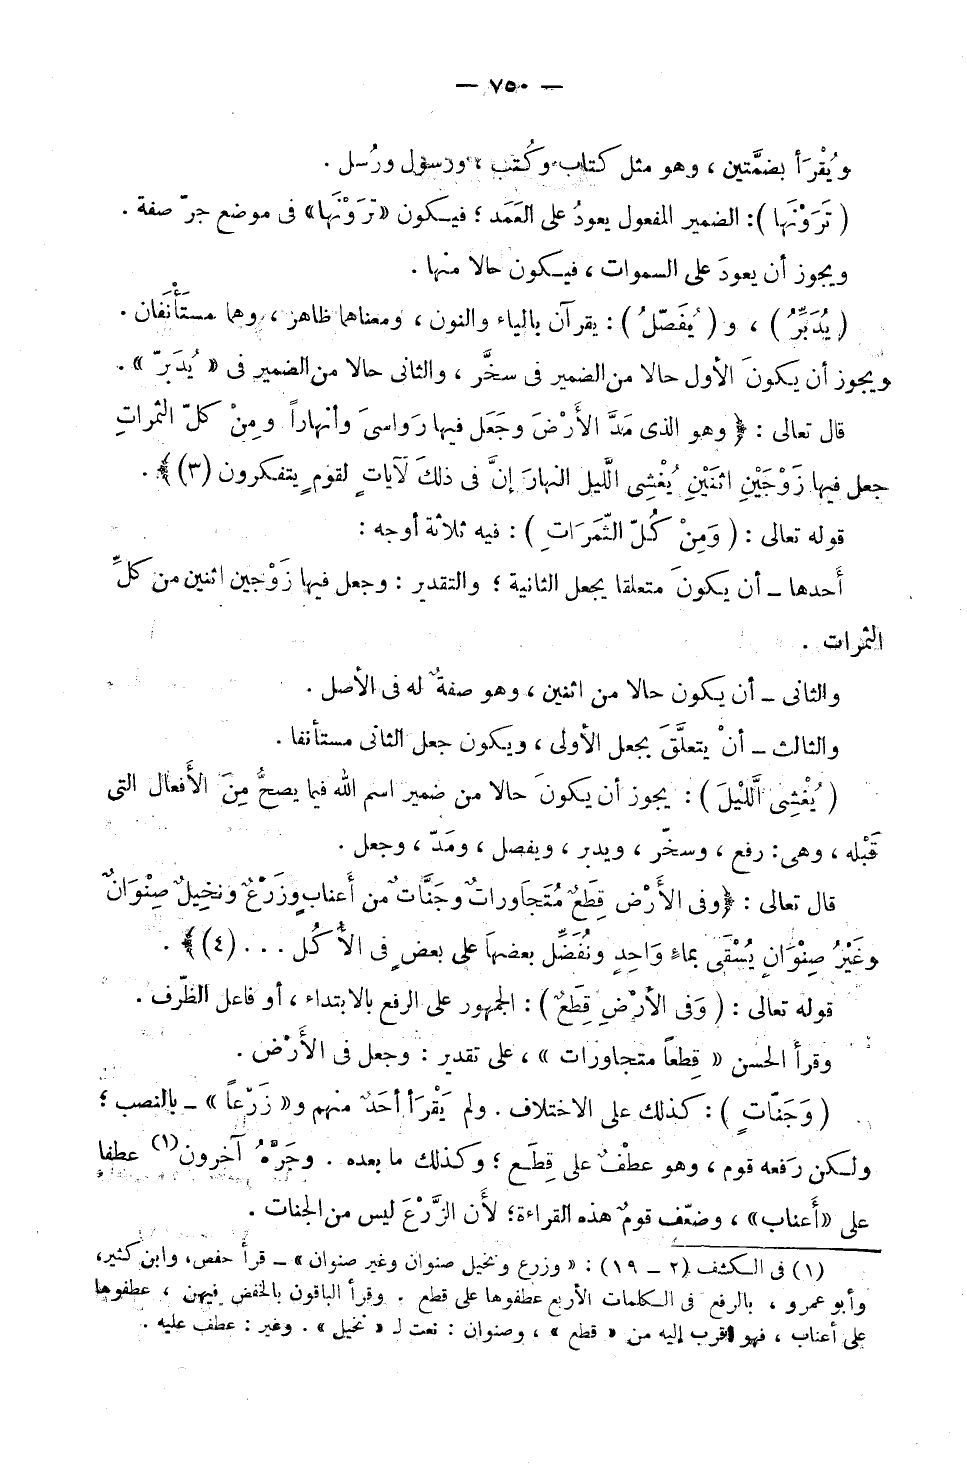 — ٧٥٠ —
ويُقْرَأ بضمَّتين ، وهو مثل كتاب وكُتب ، ورسول ورُسل .
( تَرَوْنَها ): الضمير المفعول يعودُ على العَمَد ؛ فيكون «تَرَوْنَها» فى موضع جرّ صفة .
ويجوز أن يعودَ على السموات ، فيكون حالا منها .
( يُدَبِّرُ ) ، و ( يُفَصّلُ ) : يقرآن بالياء والنون ، ومعناهما ظاهر ، وهما مستَأْنَفان .
ويجوز أن يكونَ الأول حالا من الضمير فى سخَّر ، والثانى حالا من الضمير فى « يُدَبّر » .
قال تعالى : ﴿ وهو الذى مَدَّ الأَرْضَ وجَعَل فيها رَواسىَ وأنهاراً ومِنْ كلّ الثمراتِ
جعل فيها زَوْجَيْنِ اثنَيْنِ يُغْشِى الَّليل النهارَ إنَّ فى ذلكَ لَآياتٍ لقومٍ يتفكرون (٣)﴾ .
قوله تعالى : ( وَمِنْ كُلّ الثَّمَرَاتِ ) : فيه ثلاثة أوجه :
أَحدها ــ أن يكونَ متعلقا بجعل الثانية ؛ والتقدير : وجعل فيها زَوْجين اثنين من كلِّ
الثمرات .
والثانى ــ أن يكون حالا من اثنين ، وهو صفةٌ له فى الأصل .
والثالث ــ أنْ يتعلَّقَ بجعل الأولى ، ويكون جعل الثانى مستأنفا .
( يُغْشِى الَّليْلَ ) : يجوز أن يكونَ حالا من ضمير اسم الله فيما يصحُّ مِنَ الأَفعال التى
قَبْله ، وهى: رفع ، وسخّر ، ويدبر ، ويفصل ، ومَدّ ، وجعل .
قال تعالى : ﴿وفى الأَرْض قِطَعٌ مُتَجَاوراتٌ وجَنَّاتٌ من أَعنابٍ وزَرْعٌ ونخِيلٌ صِنْوَانٌ
وغَيْرُ صِنْوَانٍ يُسْقَى بماء وَاحِدٍ ونُفَضِّل بعضَها على بعضٍ فى الأُكُل . . . (٤)﴾ .
قوله تعالى : ( وَفى الأَرْضِ قِطَعٌ ) : الجمهور على الرفع بالابتداء ، أو فاعل الظّرف .
وقرأ الحسن « قِطعاً متجاورات » ، على تقدير : وجعل فى الأَرْض .
( وَجَنّاتٍ ) : كذلك على الاختلاف . ولم يَقْرَأ أحَدٌ منهم و« زَرْعاً » ــ بالنصب ؛
ولكن رَفعه قوم ، وهو عطْفٌ على قِطَع ؛ وكذلك ما بعده . وجَرَّهُ آخرون(١) عطفا
على «أَعناب» ، وضعّف قومٌ هذه القراءة؛ لأَن الزَّرْعَ ليس من الجنات .
(١) فى الكشف (٢ ــ ١٩) : « وزرع ونخيل صنوان وغير صنوان » ــ قرأ حفص، وابن كثير،
وأبو عمرو ، بالرفع فى الكلمات الأربع عطفوها على قطع . وقرأ الباقون بالخفض فيهن ، عطفوها
على أعناب ، فهو أقرب إليه من « قطع » ، وصنوان : نعت لـ « نخيل » . وغير : عطف عليه .